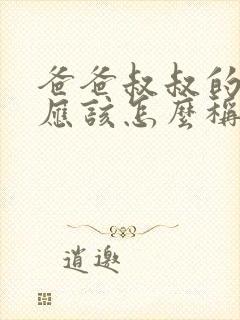 爸爸叔叔的
應該怎麼稱
逍邀